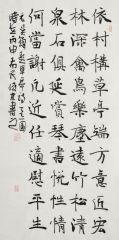 依村構草亭端方意匠宏
林深禽鳥樂塵遠竹松清
泉石供延賞琴書悅性情
何當謝凡近任適慰平生